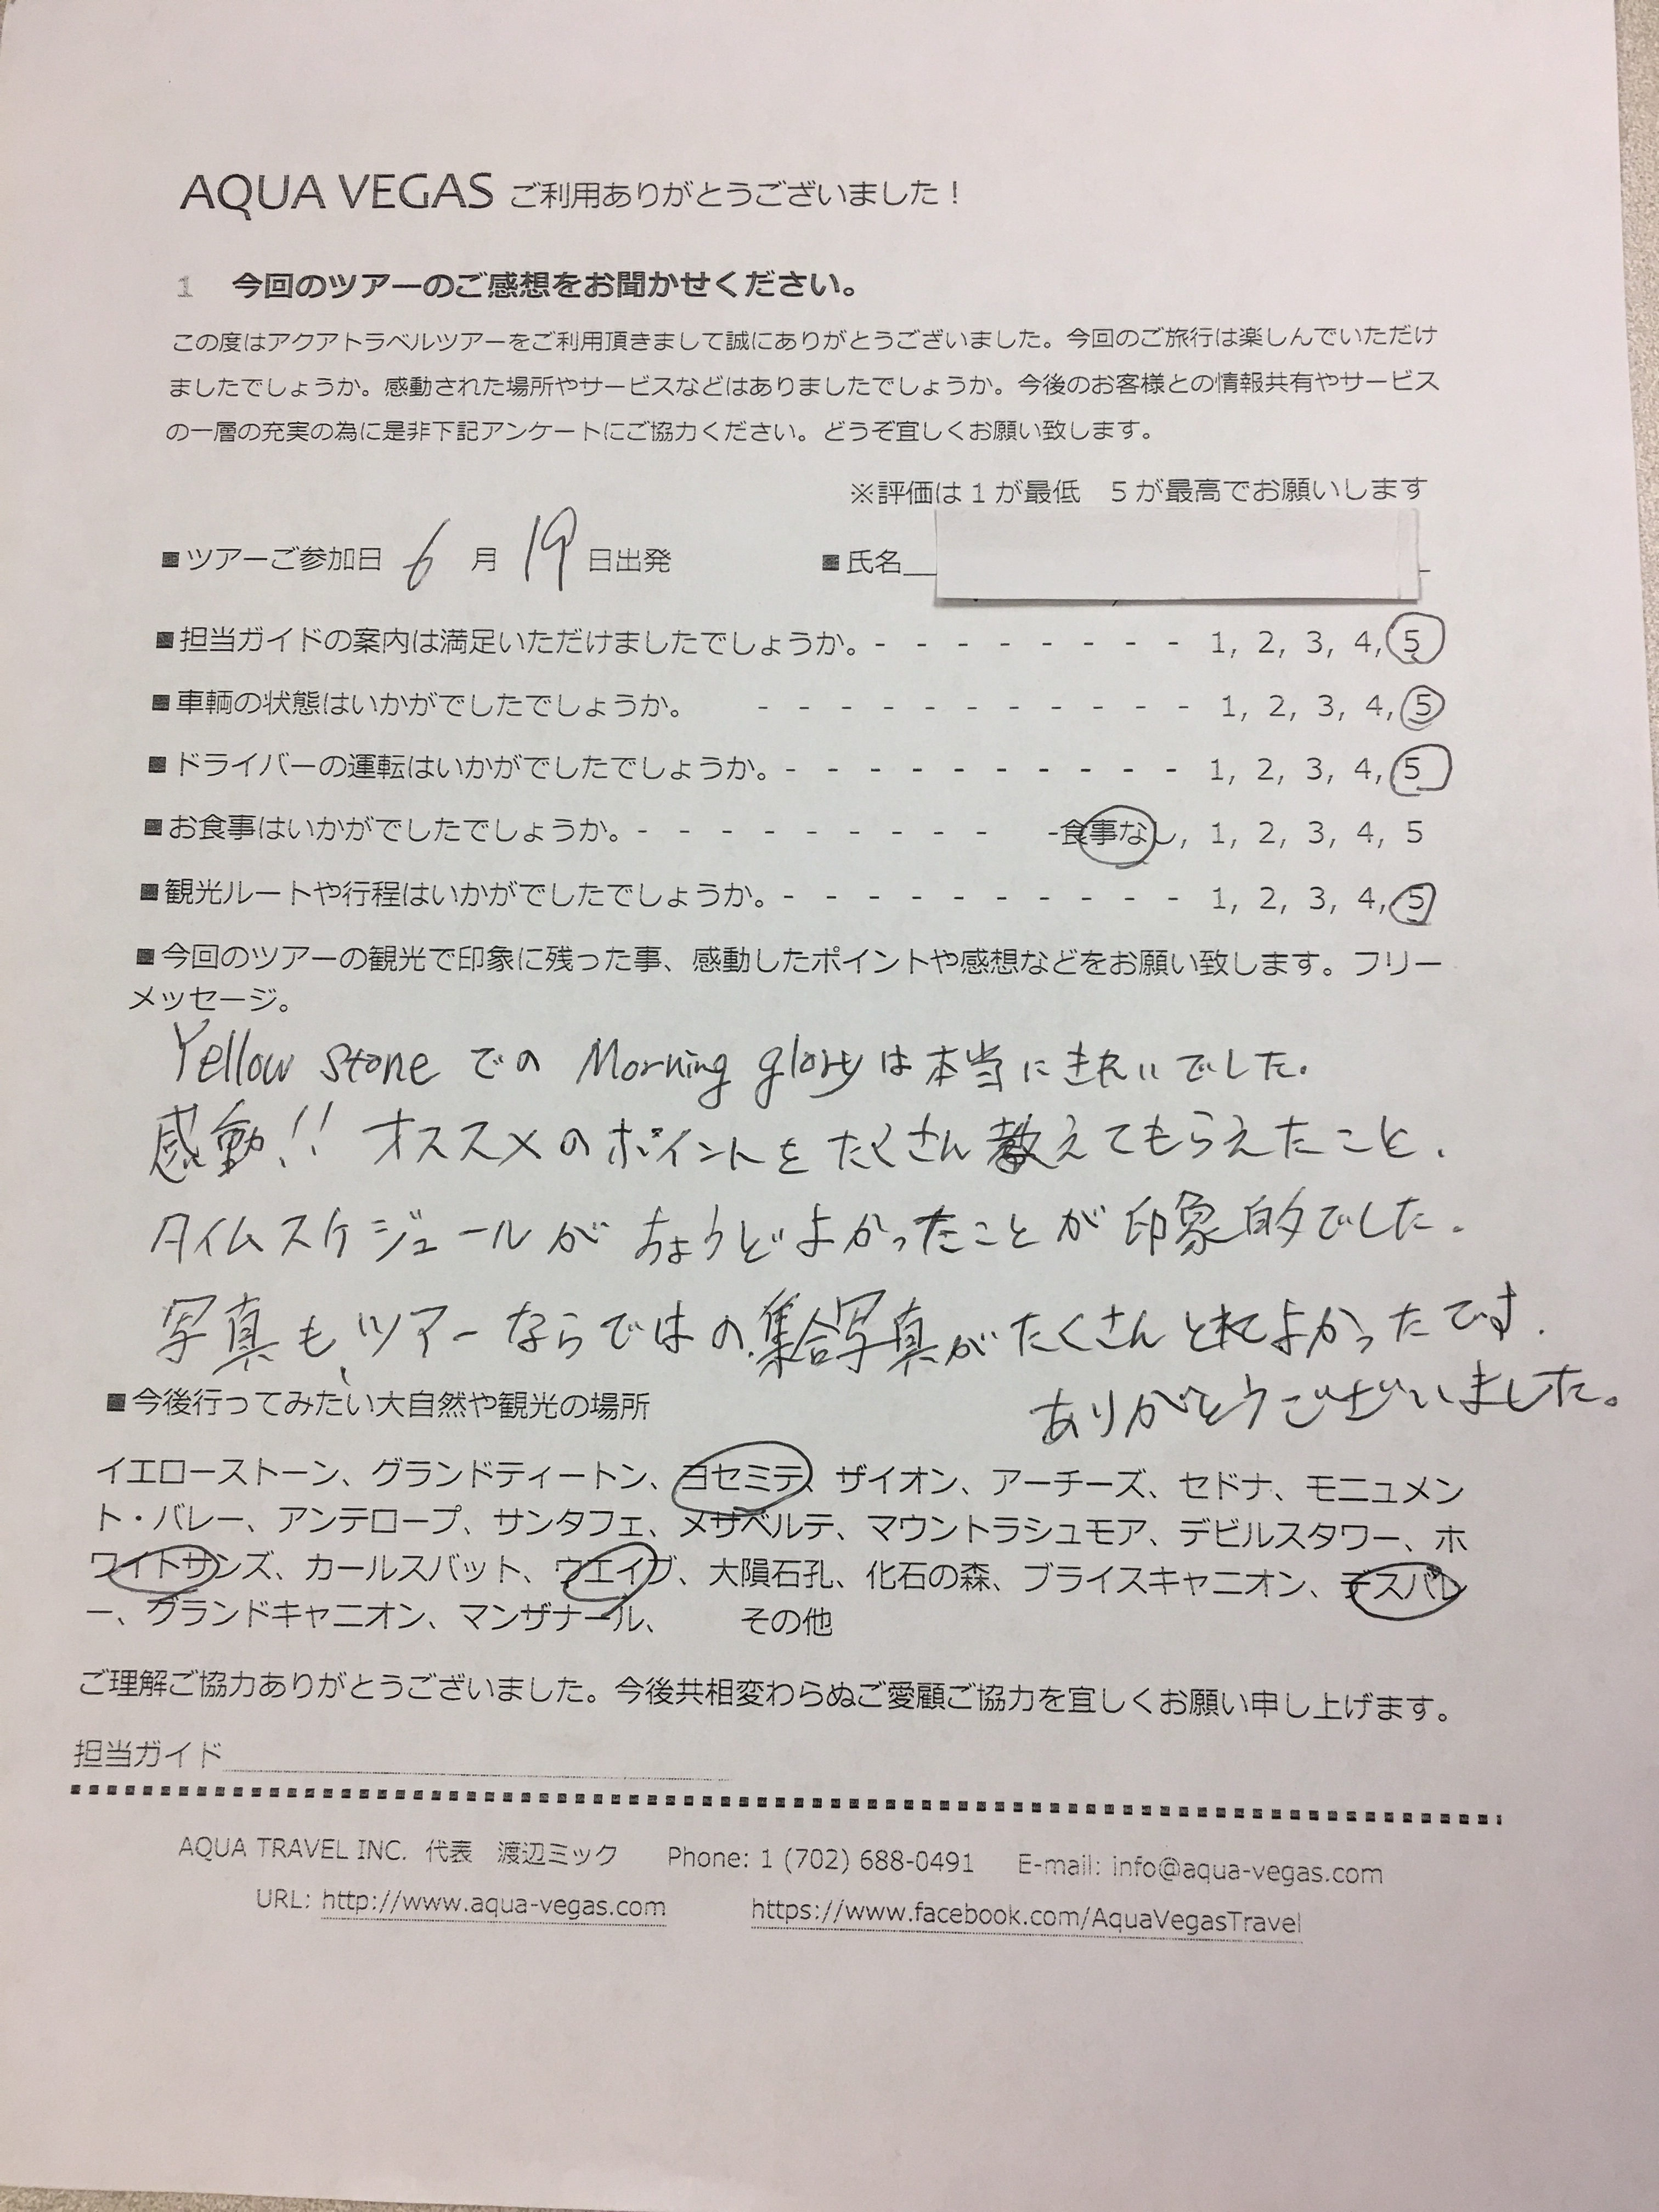 AQUA VEGAS ご利用ありがとうございました！
1 今回のツアーのご感想をお聞かせください。
この度はアクアトラベルツアーをご利用頂きまして誠にありがとうございました。今回のご旅行は楽しんでいただけ
ましたでしょうか。感動された場所やサービスなどはありましたでしょうか。今後のお客様との情報共有やサービス
の一層の充実の為に是非下記アンケートにご協力ください。どうぞ宜しくお願い致します。
※評価は１が最低　５が最高でお願いします
■ツアーご参加日 6 月 19 日出発 ■氏名
■担当ガイドの案内は満足いただけましたでしょうか。- - - - - - - - 1, 2, 3, 4, 5
■車輌の状態はいかがでしたでしょうか。 - - - - - - - - - - - 1, 2, 3, 4, 5
■ドライバーの運転はいかがでしたでしょうか。- - - - - - - - - - - 1, 2, 3, 4, 5
■お食事はいかがでしたでしょうか。- - - - - - - - - -食事なし, 1, 2, 3, 4, 5
■観光ルートや行程はいかがでしたでしょうか。- - - - - - - - - - - 1, 2, 3, 4, 5
■今回のツアーの観光で印象に残った事、感動したポイントや感想などをお願い致します。フリー
メッセージ。
Yellow stone での Morning glory は本当にきれいでした.
感動!! オススメのポイントをたくさん教えてもらえたこと.
タイムスケジュールがちょうどよかったことが印象的でした.
写真も、ツアーならではの集合写真がたくさんとれてよかったです.
ありがとうございました。
■今後行ってみたい大自然や観光の場所
イエローストーン、グランドティートン、ヨセミテ、ザイオン、アーチーズ、セドナ、モニュメン
ト・バレー、アンテロープ、サンタフェ、メサベルテ、マウントラシュモア、デビルスタワー、ホ
ワイトサンズ、カールスバット、ウエイブ、大隕石孔、化石の森、ブライスキャニオン、デスバレ
ー、グランドキャニオン、マンザナール、 その他
ご理解ご協力ありがとうございました。今後共相変わらぬご愛顧ご協力を宜しくお願い申し上げます。
担当ガイド
AQUA TRAVEL INC. 代表 渡辺ミック Phone: 1 (702) 688-0491 E-mail: info@aqua-vegas.com
URL: http://www.aqua-vegas.com https://www.facebook.com/AquaVegasTravel